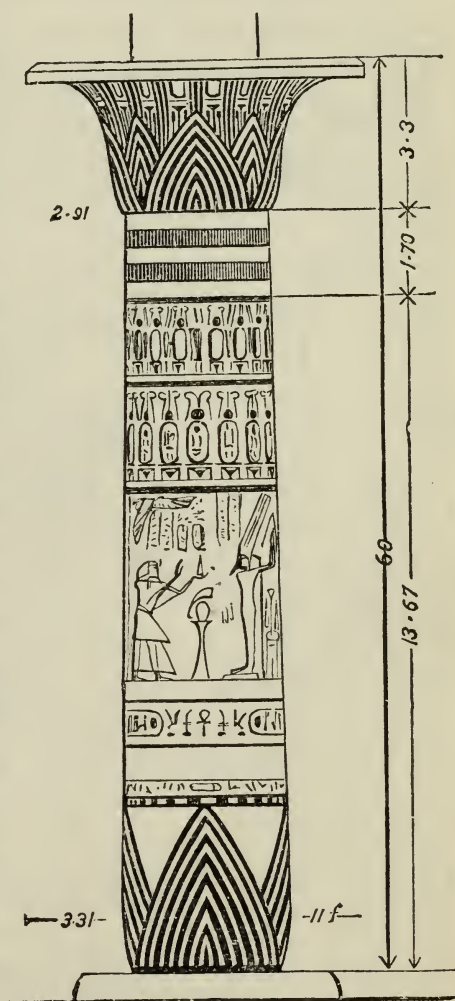 3·3
2·91
1·70
60
13·67
3·31
11 f